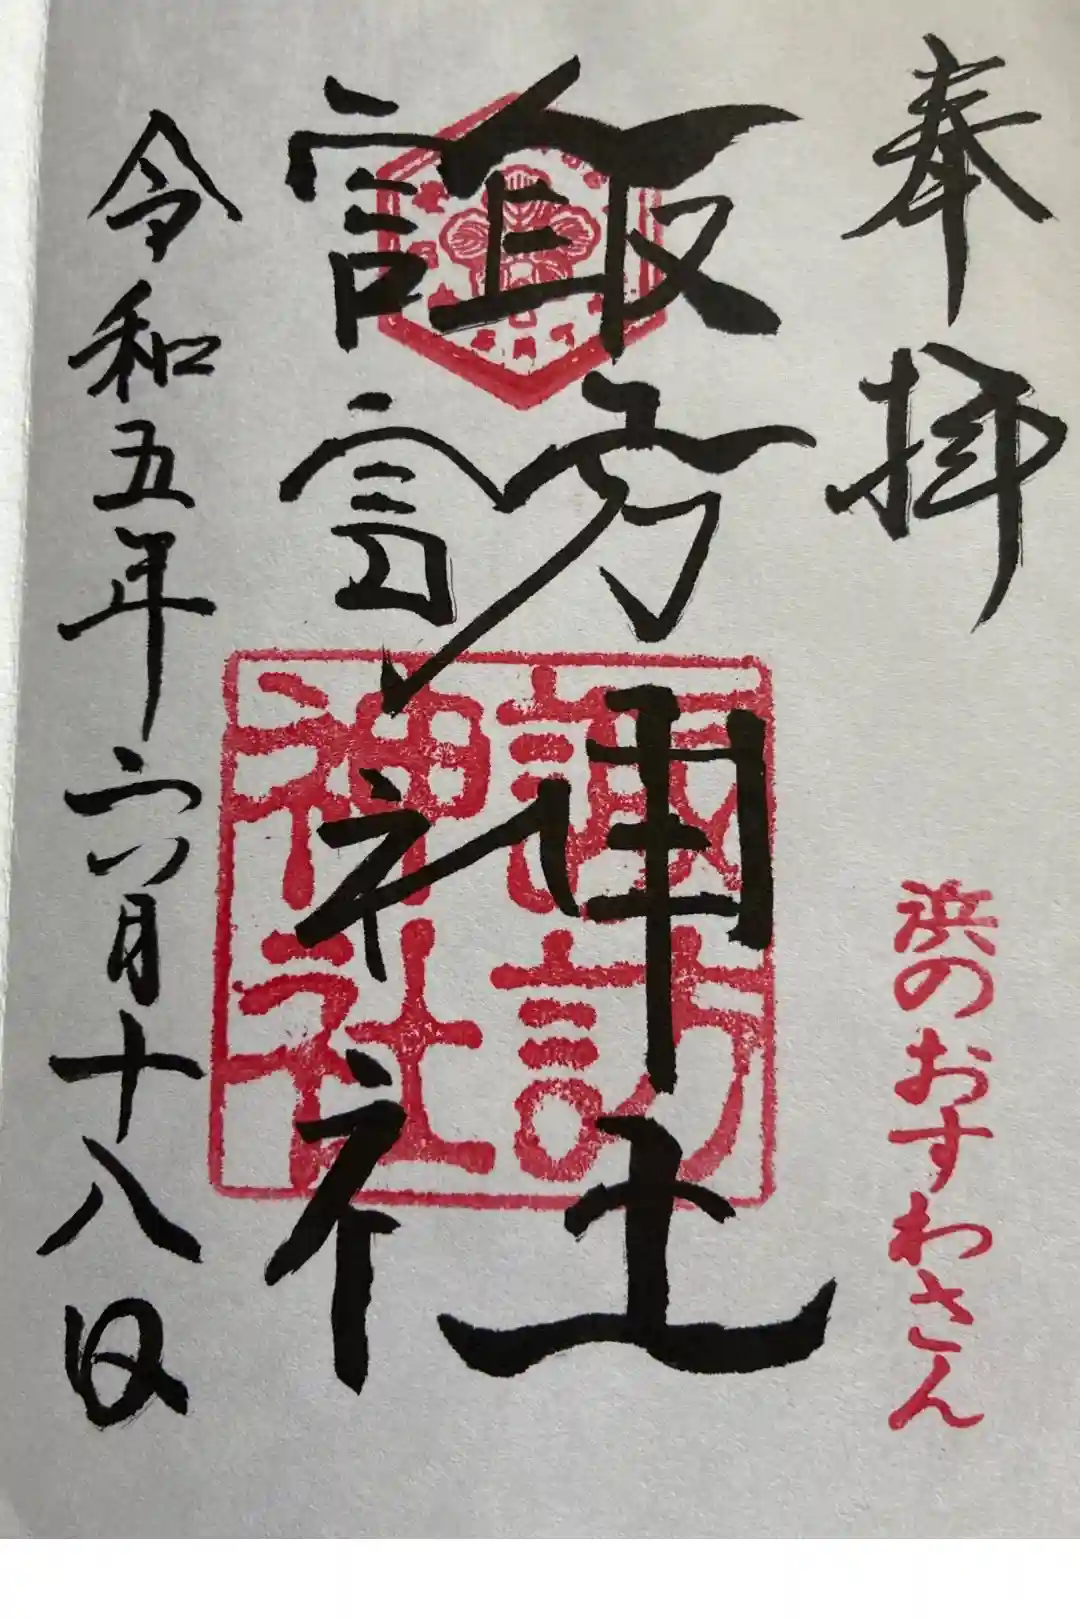 奉拝
浜のおすわさん
諏訪神社
諏訪神社
令和五年六月十八日